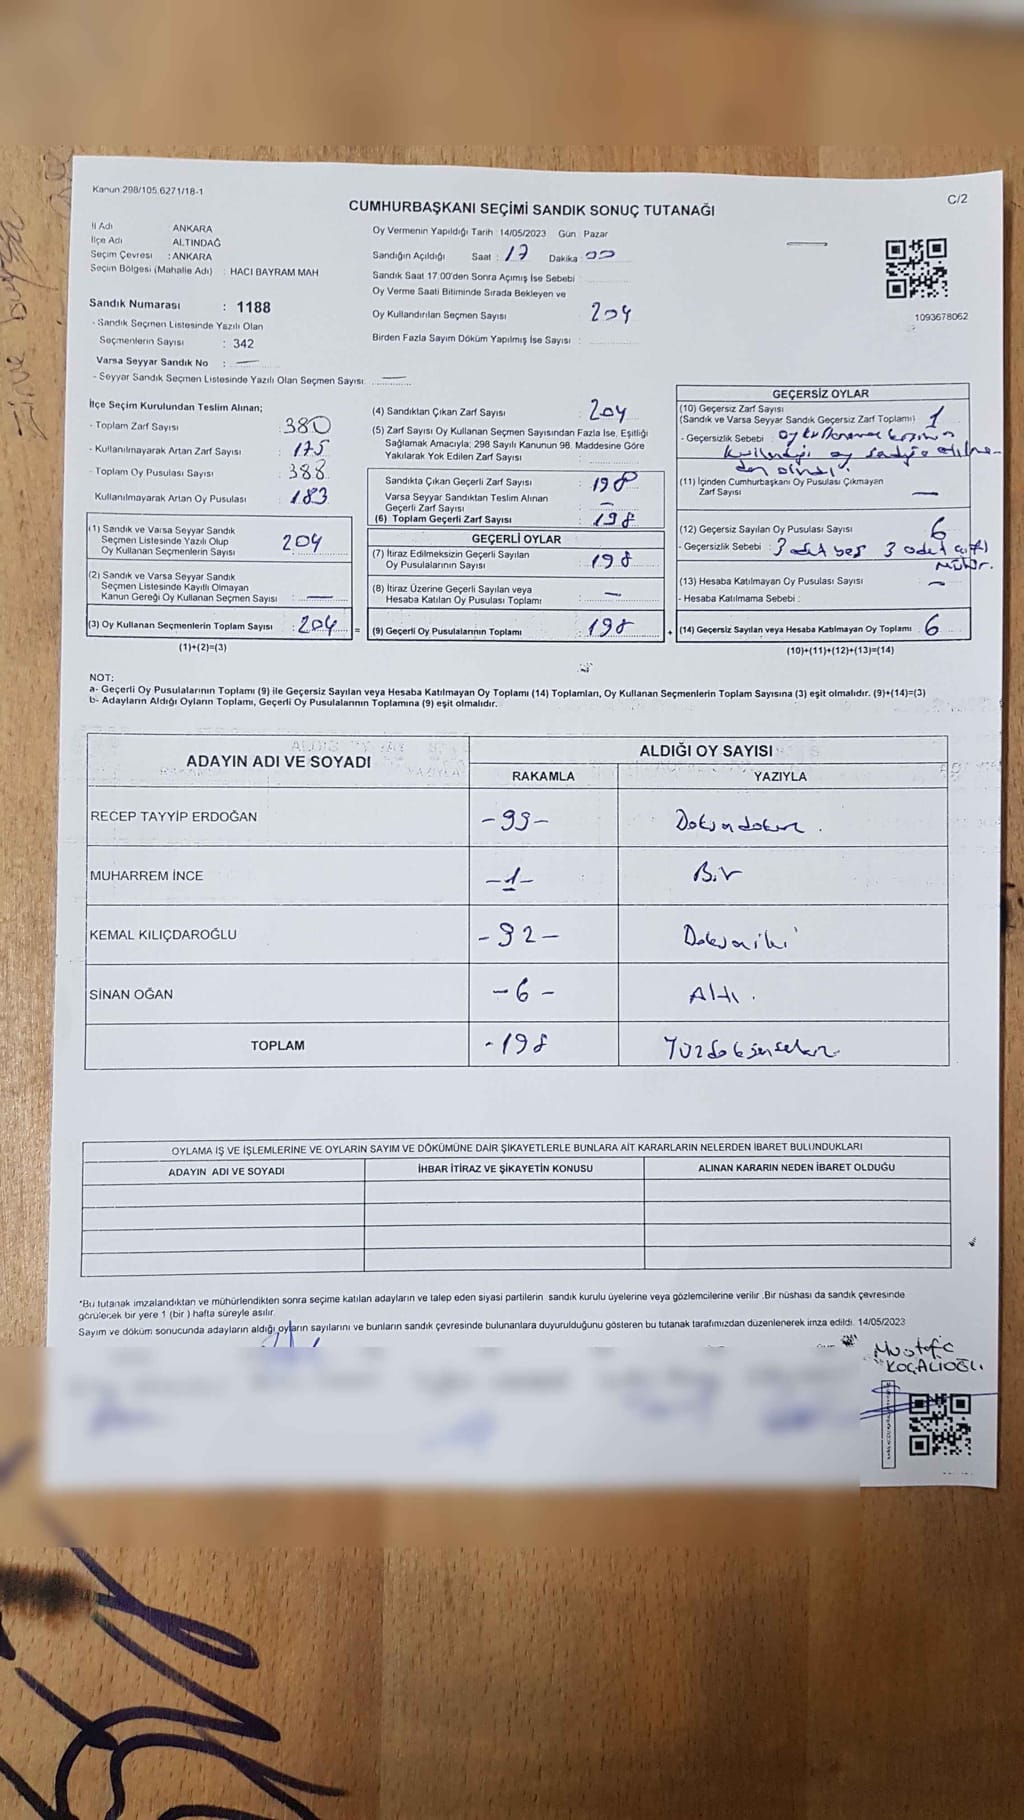 Kanun 298/105.6271/18-1
C/2
CUMHURBAŞKANI SEÇİMİ SANDIK SONUÇ TUTANAĞI
İl Adı : ANKARA
İlçe Adı : ALTINDAĞ
Seçim Çevresi : ANKARA
Seçim Bölgesi (Mahalle Adı) : HACI BAYRAM MAH
Sandık Numarası : 1188
- Sandık Seçmen Listesinde Yazılı Olan
Seçmenlerin Sayısı : 342
Varsa Seyyar Sandık No : —
- Seyyar Sandık Seçmen Listesinde Yazılı Olan Seçmen Sayısı : —
Oy Vermenin Yapıldığı Tarih : 14/05/2023 Gün : Pazar
Sandığın Açıldığı Saat : 17 Dakika : 00
Sandık Saat 17.00'den Sonra Açımış İse Sebebi :
Oy Verme Saati Bitiminde Sırada Bekleyen ve
Oy Kullandırılan Seçmen Sayısı : 204
Birden Fazla Sayım Döküm Yapılmış İse Sayısı :
1093678062
İlçe Seçim Kurulundan Teslim Alınan;
- Toplam Zarf Sayısı : 380
- Kullanılmayarak Artan Zarf Sayısı : 175
- Toplam Oy Pusulası Sayısı : 388
Kullanılmayarak Artan Oy Pusulası : 183
(1) Sandık ve Varsa Seyyar Sandık
Seçmen Listesinde Yazılı Olup
Oy Kullanan Seçmenlerin Sayısı : 204
(2) Sandık ve Varsa Seyyar Sandık
Seçmen Listesinde Kayıtlı Olmayan
Kanun Gereği Oy Kullanan Seçmen Sayısı : —
(3) Oy Kullanan Seçmenlerin Toplam Sayısı : 204 =
(1)+(2)=(3)
(4) Sandıktan Çıkan Zarf Sayısı : 204
(5) Zarf Sayısı Oy Kullanan Seçmen Sayısından Fazla İse, Eşitliği
Sağlamak Amacıyla; 298 Sayılı Kanunun 98. Maddesine Göre
Yakılarak Yok Edilen Zarf Sayısı :
Sandıkta Çıkan Geçerli Zarf Sayısı : 198
Varsa Seyyar Sandıktan Teslim Alınan
Geçerli Zarf Sayısı : —
(6) Toplam Geçerli Zarf Sayısı : 198
GEÇERLİ OYLAR
(7) İtiraz Edilmeksizin Geçerli Sayılan
Oy Pusulalarının Sayısı : 198
(8) İtiraz Üzerine Geçerli Sayılan veya
Hesaba Katılan Oy Pusulası Toplamı : —
(9) Geçerli Oy Pusulalarının Toplamı : 198 +
GEÇERSİZ OYLAR
(10) Geçersiz Zarf Sayısı
(Sandık ve Varsa Seyyar Sandık Geçersiz Zarf Toplamı) : 1
- Geçersizlik Sebebi :
(11) İçinden Cumhurbaşkanı Oy Pusulası Çıkmayan
Zarf Sayısı : —
(12) Geçersiz Sayılan Oy Pusulası Sayısı : 6
- Geçersizlik Sebebi : 3 adet boş 3 adet çift
mühür.
(13) Hesaba Katılmayan Oy Pusulası Sayısı : —
- Hesaba Katılmama Sebebi :
(14) Geçersiz Sayılan veya Hesaba Katılmayan Oy Toplamı : 6
(10)+(11)+(12)+(13)=(14)
NOT:
a- Geçerli Oy Pusulalarının Toplamı (9) ile Geçersiz Sayılan veya Hesaba Katılmayan Oy Toplamı (14) Toplamları, Oy Kullanan Seçmenlerin Toplam Sayısına (3) eşit olmalıdır. (9)+(14)=(3)
b- Adayların Aldığı Oyların Toplamı, Geçerli Oy Pusulalarının Toplamına (9) eşit olmalıdır.
ADAYIN ADI VE SOYADI
ALDIĞI OY SAYISI
RAKAMLA YAZIYLA
RECEP TAYYİP ERDOĞAN -99- Doksandokuz.
MUHARREM İNCE -1- Bir
KEMAL KILIÇDAROĞLU -92- Doksaniki
SİNAN OĞAN -6- Altı.
TOPLAM -198 Yüzdoksansekiz
OYLAMA İŞ VE İŞLEMLERİNE VE OYLARIN SAYIM VE DÖKÜMÜNE DAİR ŞİKAYETLERLE BUNLARA AİT KARARLARIN NELERDEN İBARET BULUNDUKLARI
ADAYIN ADI VE SOYADI İHBAR İTİRAZ VE ŞİKAYETİN KONUSU ALINAN KARARIN NEDEN İBARET OLDUĞU
*Bu tutanak imzalandıktan ve mühürlendikten sonra seçime katılan adayların ve talep eden siyasi partilerin sandık kurulu üyelerine veya gözlemcilerine verilir .Bir nüshası da sandık çevresinde
görülecek bir yere 1 (bir ) hafta süreyle asılır.
Sayım ve döküm sonucunda adayların aldığı oyların sayılarını ve bunların sandık çevresinde bulunanlara duyurulduğunu gösteren bu tutanak tarafımızdan düzenlenerek imza edildi. 14/05/2023
Mustafa
KOÇALİOĞLU